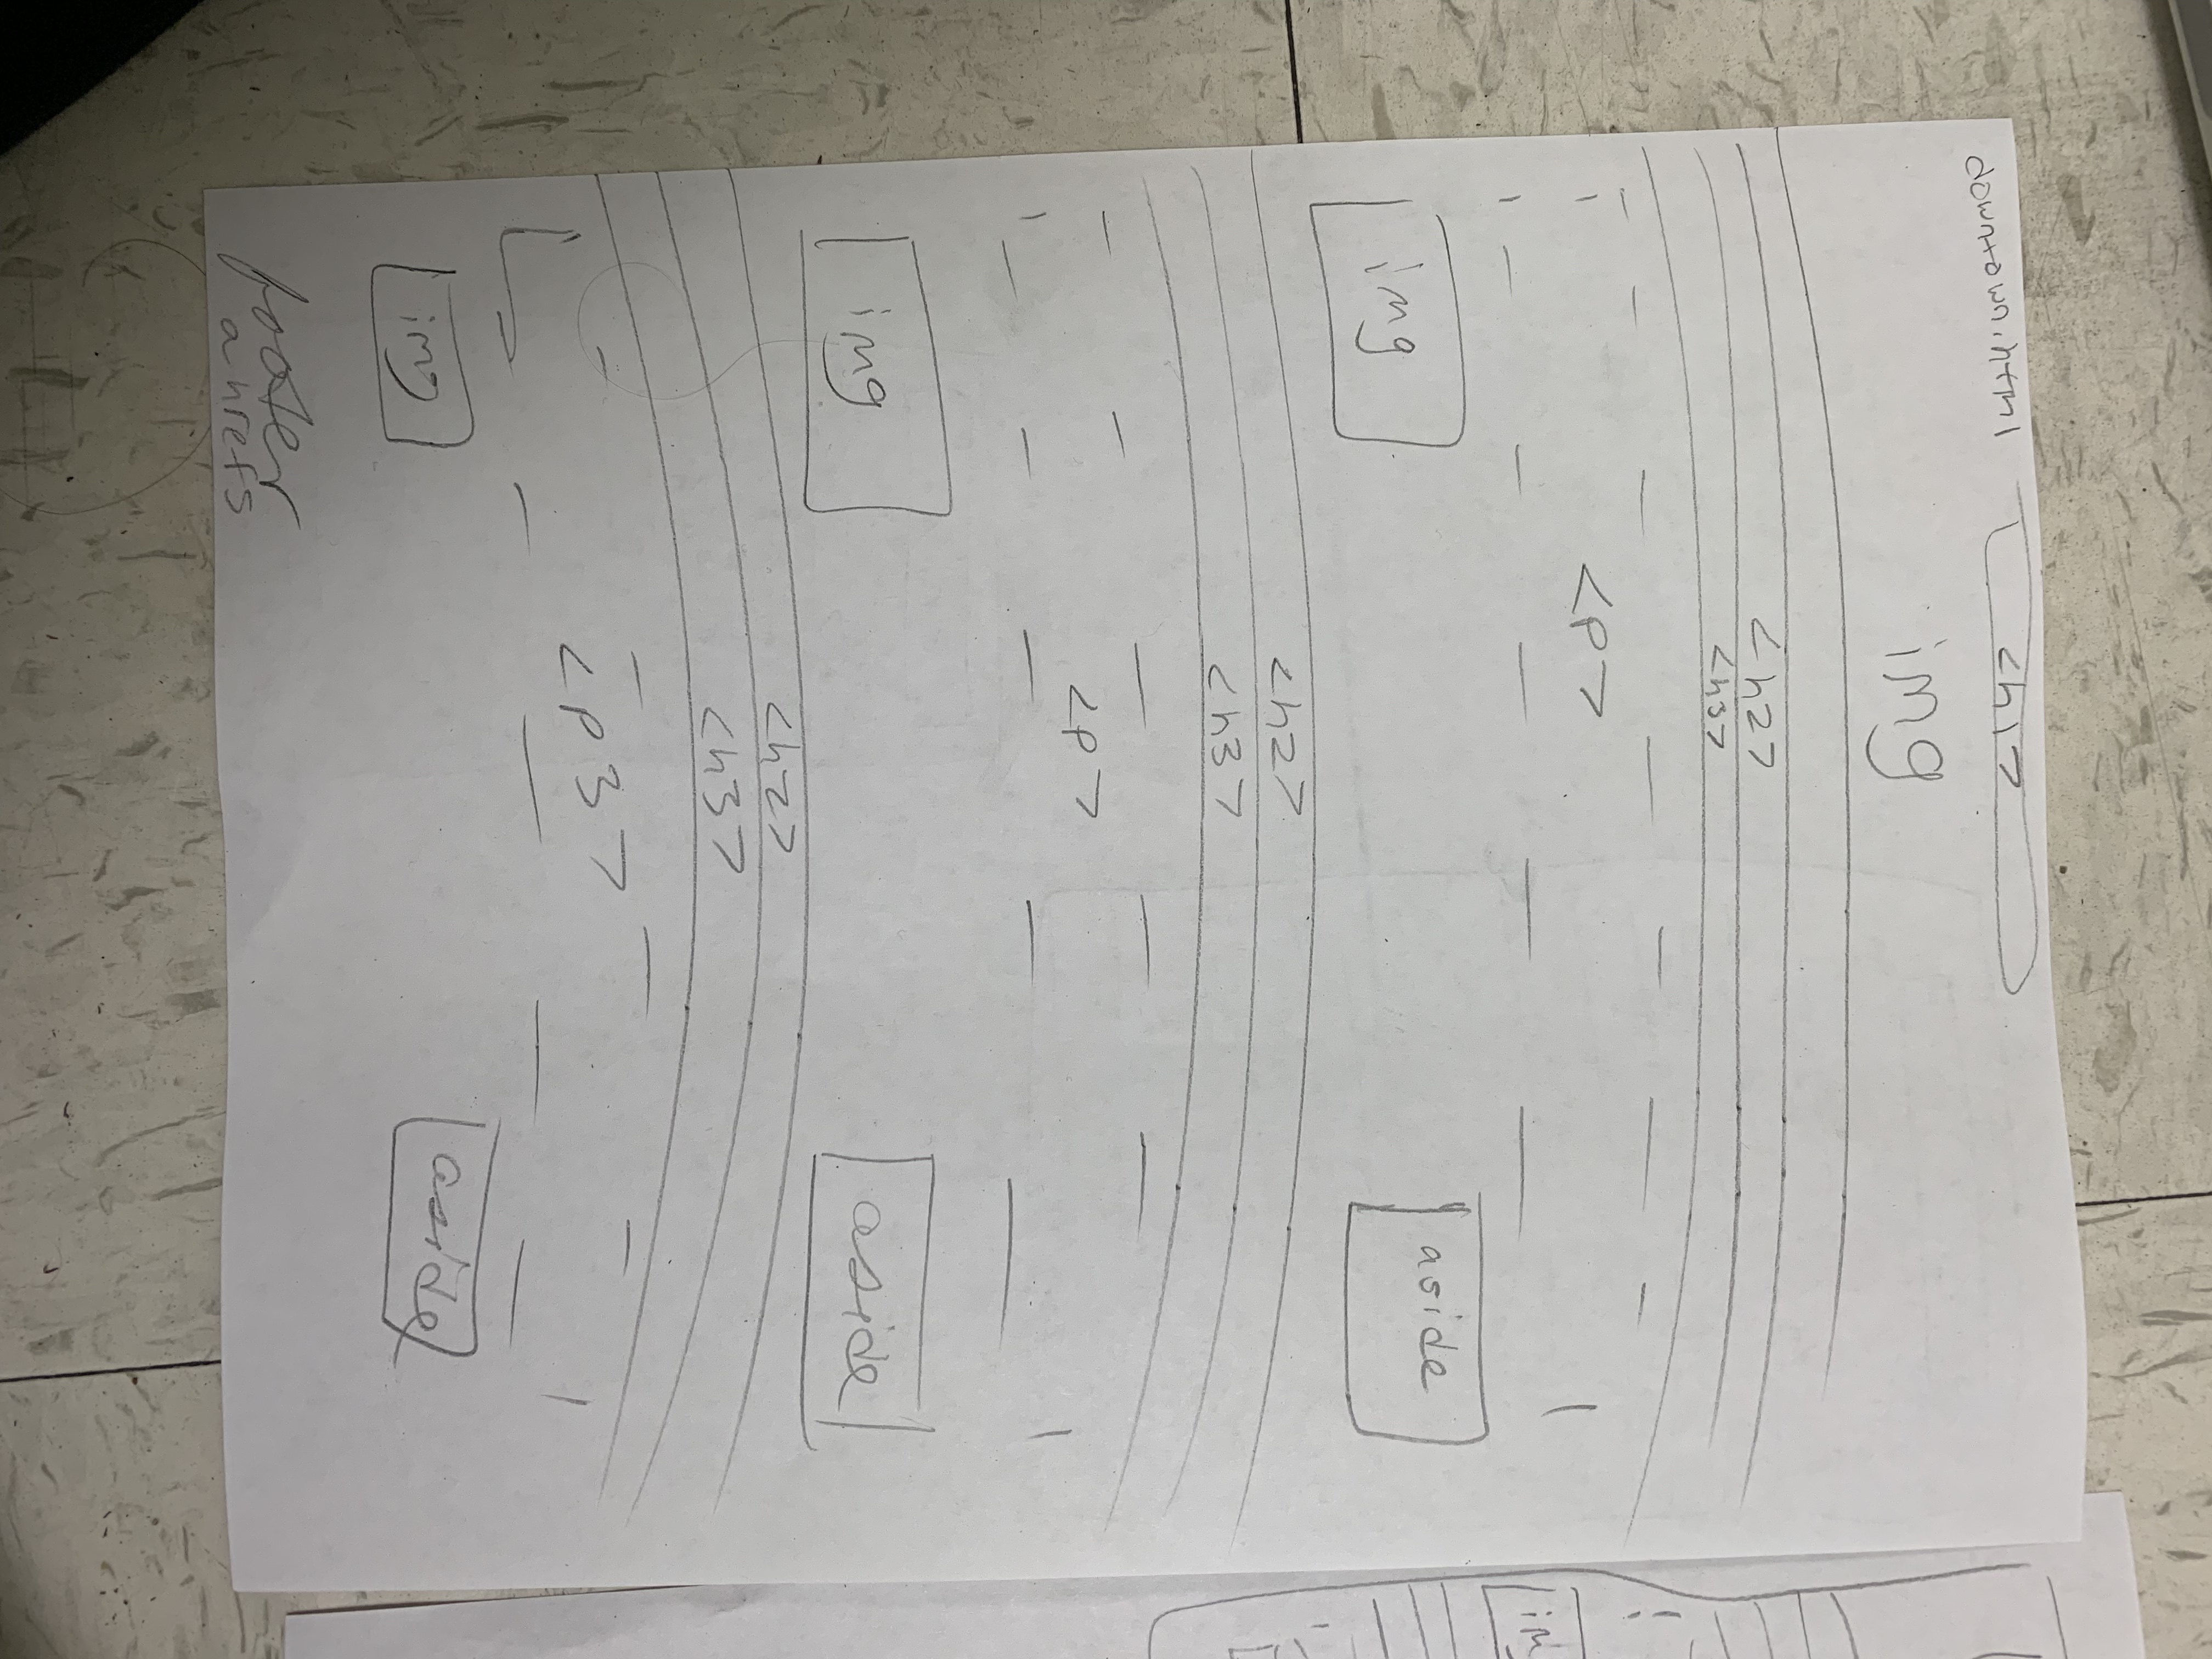 downtown.html
<h1>
img
<h2>
<h3>
<p>
img aside
<h2>
<h3>
<p>
img aside
<h2>
<h3>
<p3>
img aside
footer
a hrefs
im